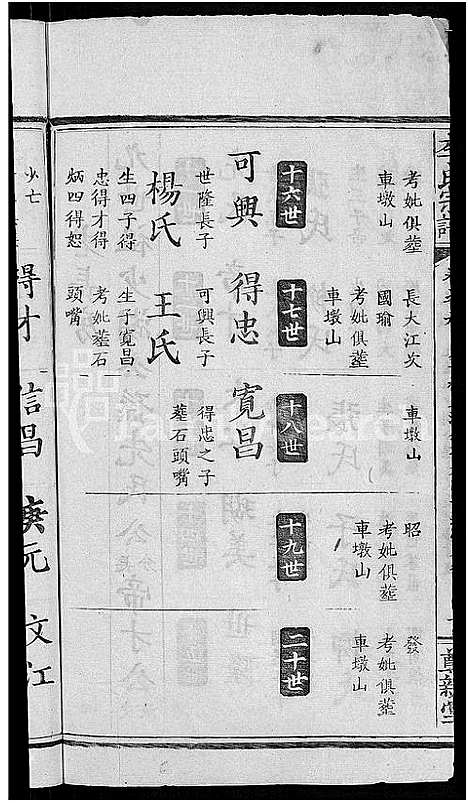 李氏宗譜
尊親堂
考妣俱塟
車墩山
長大江次
國瑜
考妣俱塟
車墩山
車墩山
昭
考妣俱塟
車墩山
發
考妣俱塟
車墩山
十六世
十七世
十八世
十九世
二十世
可興
世隆長子
楊氏
生四子得
忠得才得
炳四得恕
得忠
可興長子
王氏
生子寬昌
考妣塟石
頭嘴
寬昌
得忠之子
塟石頭嘴
少亡
得才
信昌
庚元
文江